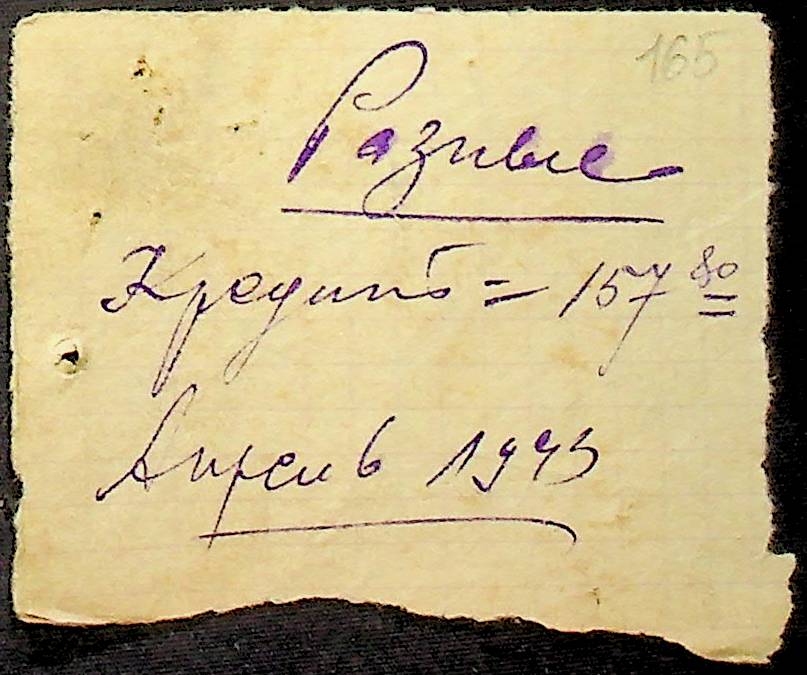 165
Разные
Кредитъ = 157 80
Апрель 1943